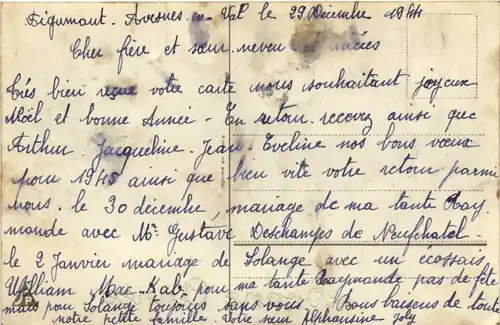 Figumont. Avesnes-en-Val le 29 Décembre 1944
Cher frère et sœur neveu et nièces
Très bien reçue votre carte nous souhaitant joyeux
Noël et bonne Année - En retour recevez ainsi que
Arthur. Jacqueline. Jean. Eveline nos bons vœux
pour 1945 ainsi que bien vite votre retour parmi
nous. le 30 décembre, mariage de ma tante Ray-
monde avec Mr Gustave Deschamps de Neufchatel-
le 2 Janvier mariage de Solange avec un écossais
William Mac-Kab pour ma tante Raymonde pas de fête
mais pour Solange toujours sans vous. Bons baisers de tout
notre petite famille. Votre sœur Alphonsine Joly